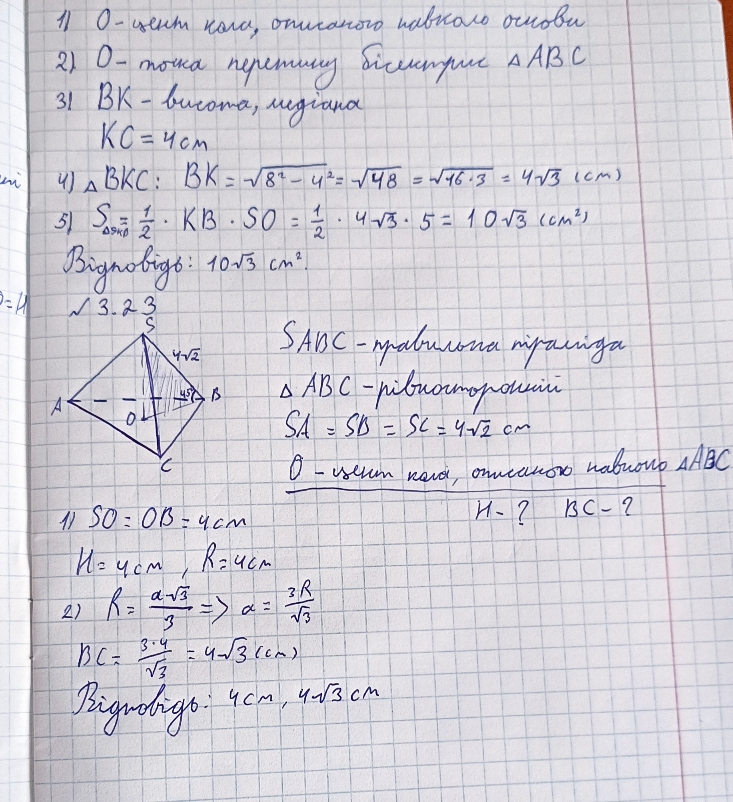 1) О - цент кола, описаного навколо основи
2) О - точка перетину бісектрис △ABC
3) BK - висота, медіана
KC = 4 см
4) △BKC: BK = √(8² - 4²) = √48 = √(16·3) = 4√3 (см)
5) S = 1/2 · KB · SO = 1/2 · 4√3 · 5 = 10√3 (см²)
Відповідь: 10√3 см².
√ 3.23
S
4√2
A
45°
B
O
C
SABC - правильна піраміда
△ABC - рівносторонній
SA = SB = SC = 4√2 см
О - цент кола, описаного навколо △ABC
H - ? BC - ?
1) SO = OB = 4 см
H = 4 см, R = 4 см
2) R = a√3/3 => a = 3R/√3
BC = 3·4/√3 = 4√3 (см)
Відповідь: 4 см, 4√3 см